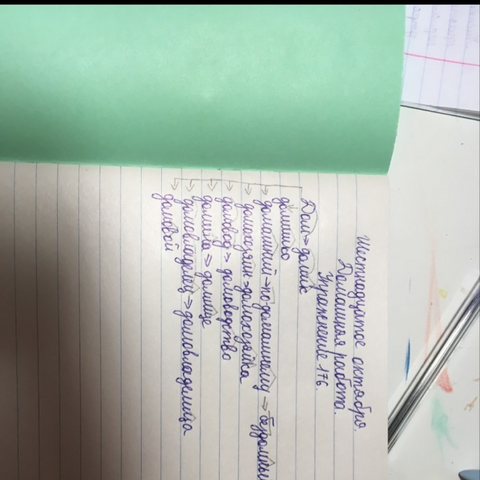 Шестнадцатое октября.
Домашняя работа.
Упражнение 176.
Дом → домик
домишко
домашний → по-домашнему →
домохозяин → домохозяйка
домовод → домоводство
домина → домище
домовладелец → домовладелица
домовой